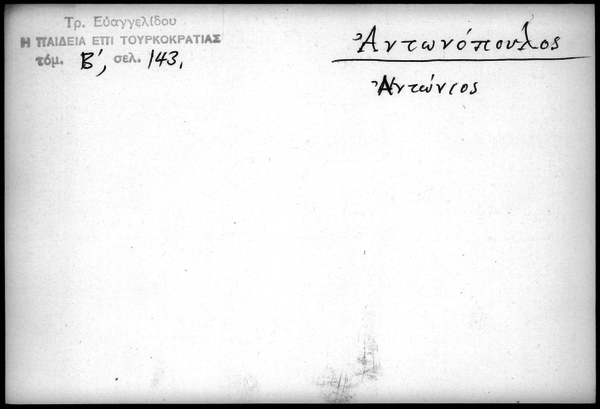 Τρ. Εὐαγγελίδου
Η ΠΑΙΔΕΙΑ ΕΠΙ ΤΟΥΡΚΟΚΡΑΤΙΑΣ
τόμ. Β', σελ. 143.
Ἀντωνόπουλος
Ἀντώνιος